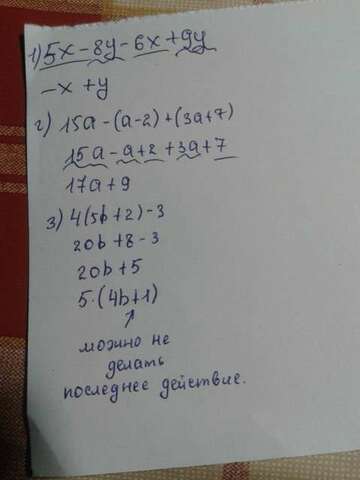 1) 5x - 8y - 6x + 9y
-x + y
2) 15a - (a-2) + (3a+7)
15a - a + 2 + 3a + 7
17a + 9
3) 4(5b+2) - 3
20b + 8 - 3
20b + 5
5·(4b+1)
↑
можно не
делать
последнее действие.